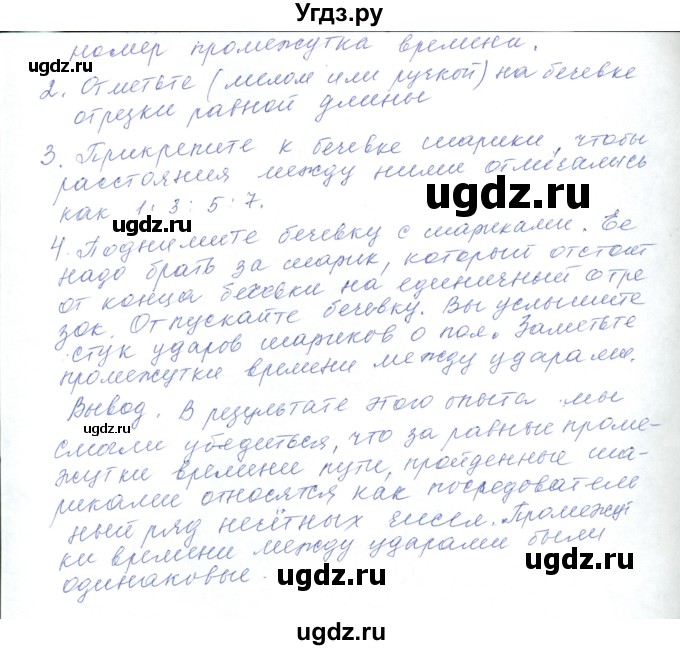 Угдз.ру
номер промежутка времени.
ugdz.ru
2. Отметьте (мелом или ручкой) на бечевке
ugdz.ru
отрезки равной длины
3. Прикрепите к бечевке шарики, чтобы
расстояния между ними отличались
ugdz.ru
как 1 : 3 : 5 : 7.
4. Поднимите бечевку с шариками. Ее
надо брать за шарик, который отстоит
ugdz.ru
от конца бечевки на единичный отре
зок. Отпускайте бечевку. Вы услышите
стук ударов шариков о пол. Заметьте
ugdz.ru
промежутки времени между ударами.
Вывод. В результате этого опыта мы
ugdz.ru
смогли убедиться, что за равные проме-
жутки времени пути, пройденные ша-
риками относятся как посредователь
ный ряд нечётных чисел. Промежут
ки времени между ударами были
ugdz.ru
одинаковые.
ugdz.ru
ugdz.ru